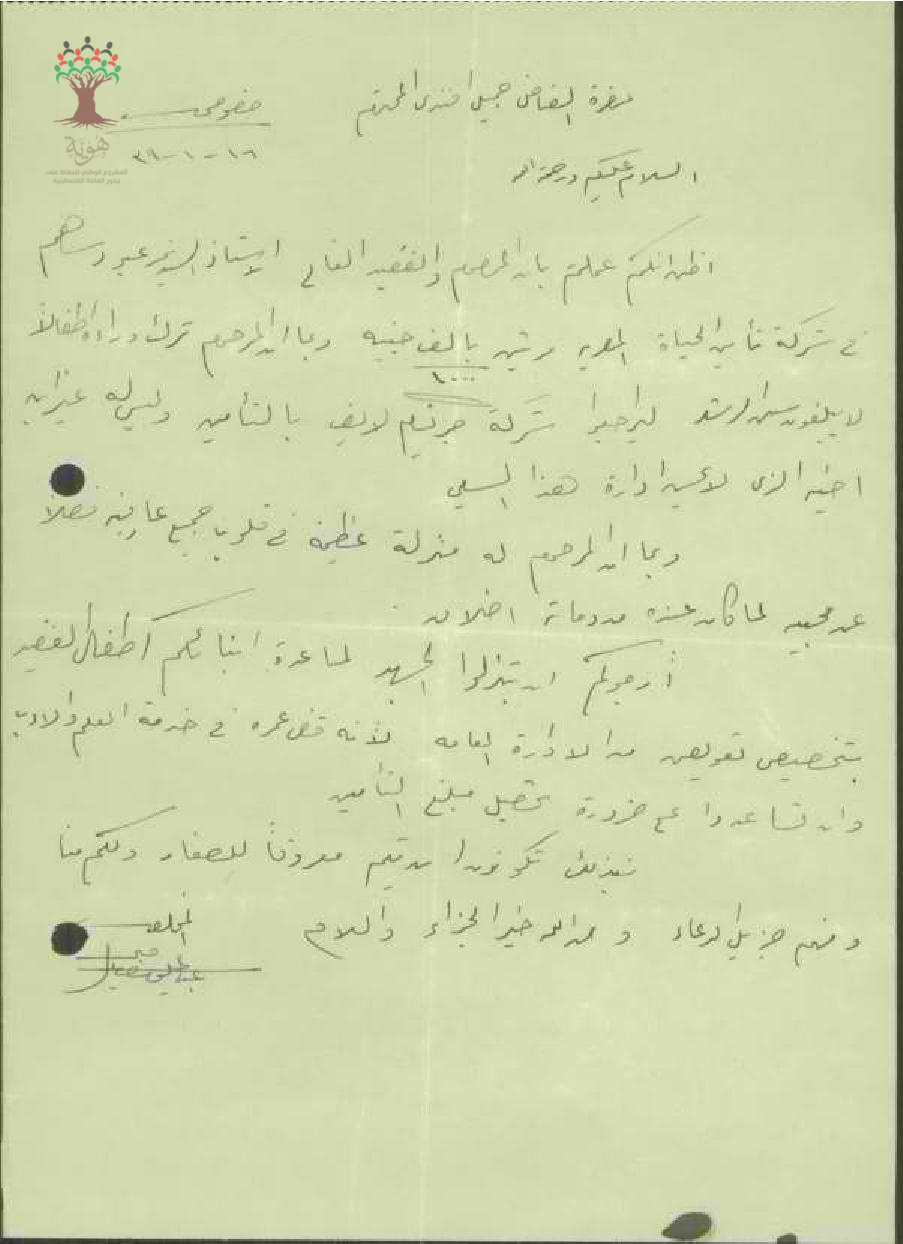 هوية
المشروع الوطني للحفاظ على
جذور العائلة الفلسطينية
حضرة القاضي جميل افندي المحترم
خصوصي
١٦-١-٣٩
السلام عليكم ورحمة الله
اظن انكم علمتم بان المرحوم والفقيد الغالي الاستاذ السيد
في شركة تأمين الحياة المصرية بالف جنيه وبما ان المرحوم ترك وراءه اطفالاً
١٠٠٠
لا يبلغون سن الرشد شركة لايف بالتأمين وليس له غير ابن
اخيه الذي لا يحسن ادارة هذا السبيل
وبما ان المرحوم له منزلة عظيمة في قلوب جميع عارفيه فضلاً
عن محبيه لما كان عنده من دماثة اخلاق
أرجوكم ان تبذلوا الجهد لمساعدة ابنائكم اطفال الفقيد
بتخصيص تعويض من الادارة العامه لأنه قضى عمره في خدمة العلم والادب
وان تساعدوا على ضرورة تحصيل مبلغ التأمين
فبذلك تكونوا معروفاً للصغار ولكم منا
ومنهم جزيل الدعاء ومن الله خير الجزاء والسلام
المخلص